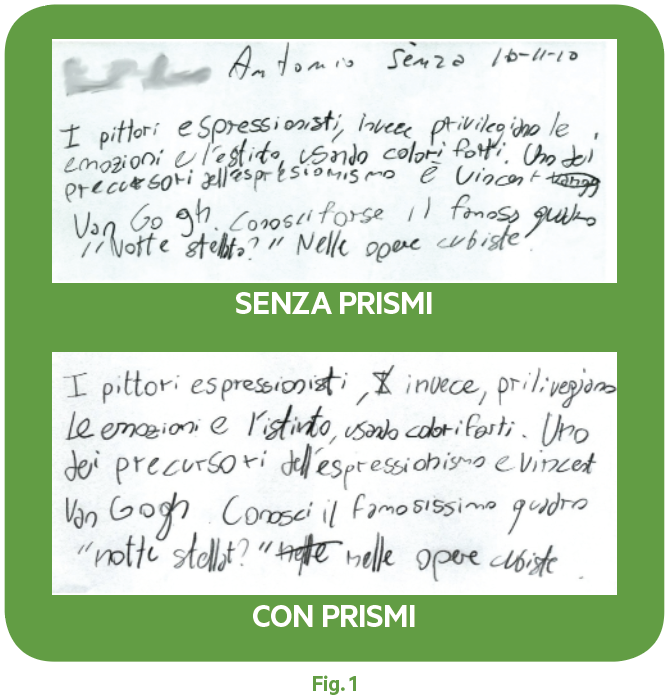 Antonio Senza 10-11-10
I pittori espressionisti, invece privilegiano le
emozioni e l'estinto, usando colori forti. Uno dei
precursori dell'espresionismo è Vincent
Van Go gh. Conosci forse il famoso quadro
"Notte stellata?" Nelle opere cubiste
SENZA PRISMI
I pittori espressionisti, invece, prilivegiano
Le emozioni e l'istinto, usando colori forti. Uno
dei precursori dell'espressionismo e Vincet
Van Gogh. Conosci il famosissimo quadro
"notte stellat?" nelle opere cubiste.
CON PRISMI
Fig. 1